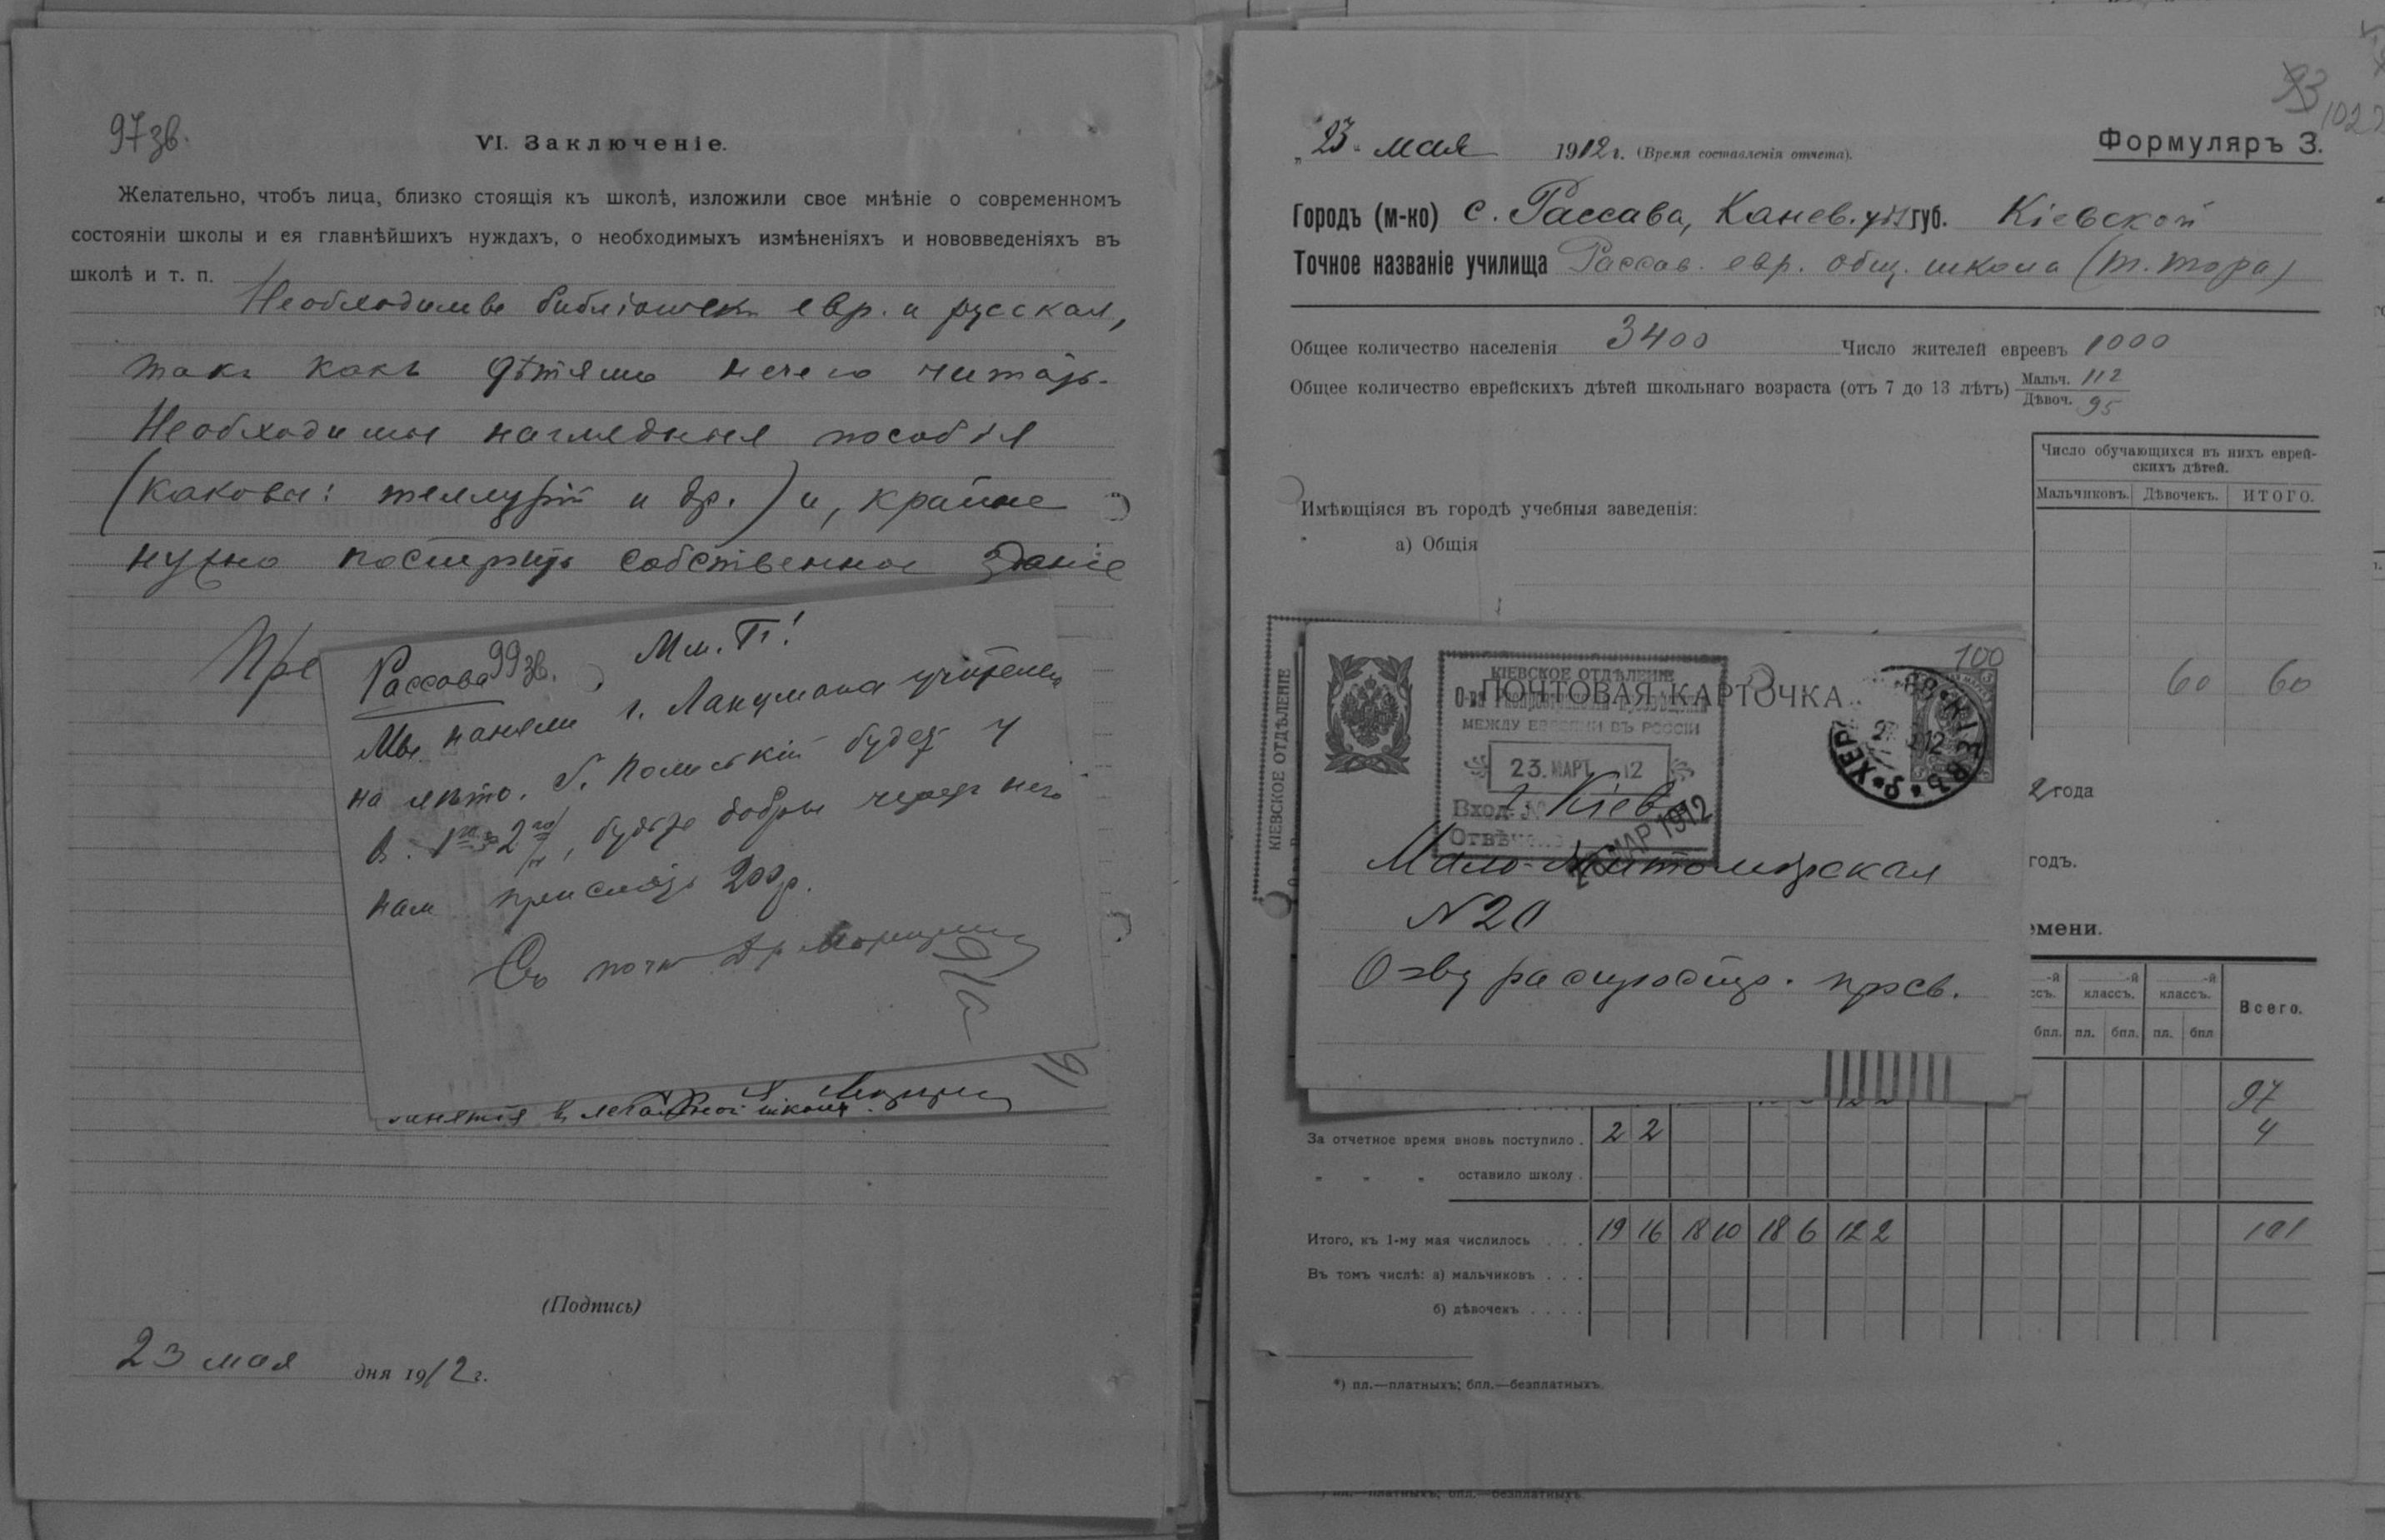 97 зв.
VI. Заключеніе.
Желательно, чтобъ лица, близко стоящія къ школѣ, изложили свое мнѣніе о современномъ
состояніи школы и ея главнѣйшихъ нуждахъ, о необходимыхъ измѣненіяхъ и нововведеніяхъ въ
школѣ и т. п.
Необходимы библіотеки евр. и русская,
такъ какъ дѣтямъ нечего читать.
Необходимы наглядныя пособія
(каковы: теллурій и др.) и, крайне
нужно построить собственное зданіе
Пре
Рассава 99 зв.
Мм. Гг!
Мы наняли г. учителемъ
на лѣто. Г. будетъ у
В. 1го 2го, будьте добры черезъ него
нам прислать 200 р.
Съ почт
занятія въ школѣ.
(Подпись)
23 мая дня 1912 г.
93
102
„23“ мая 1912 г. (Время составленія отчета).
Формуляръ 3.
Городъ (м-ко) с. Рассава, Канев. уѣз губ. Кіевской
Точное названіе училища Рассав. евр. общ. школа (т. тора)
Общее количество населенія 3400 Число жителей евреевъ 1000
Общее количество еврейскихъ дѣтей школьнаго возраста (отъ 7 до 13 лѣтъ) Мальч. 112
Дѣвоч. 95
Число обучающихся въ нихъ еврей-
скихъ дѣтей.
Мальчиковъ. Дѣвочекъ. ИТОГО.
Имѣющіяся въ городѣ учебныя заведенія:
а) Общія
60 60
КІЕВСКОЕ ОТДѢЛЕНІЕ
100
ПОЧТОВАЯ КАРТОЧКА
КІЕВСКОЕ ОТДѢЛЕНІЕ
МЕЖДУ ЕВРЕЯМИ ВЪ РОССІИ
23. МАРТ. 12
Вход. №
Отвѣч
МАР 1912
г. Кіевъ
Мало-Житомирская
N 20
О-ву распростр. просв.
2 года
годъ.
емени.
-й -й -й
ссъ. классъ. классъ. Всего.
бпл. пл. бпл. пл. бпл
97
За отчетное время вновь поступило . 2 2 4
„ „ „ оставило школу .
Итого, къ 1-му мая числилось . . . 19 16 18 10 18 6 12 2 101
Въ томъ числѣ: а) мальчиковъ . . .
б) дѣвочекъ . . . .
*) пл.—платныхъ; бпл.—безплатныхъ.
пл.—платныхъ; бпл.—безплатныхъ